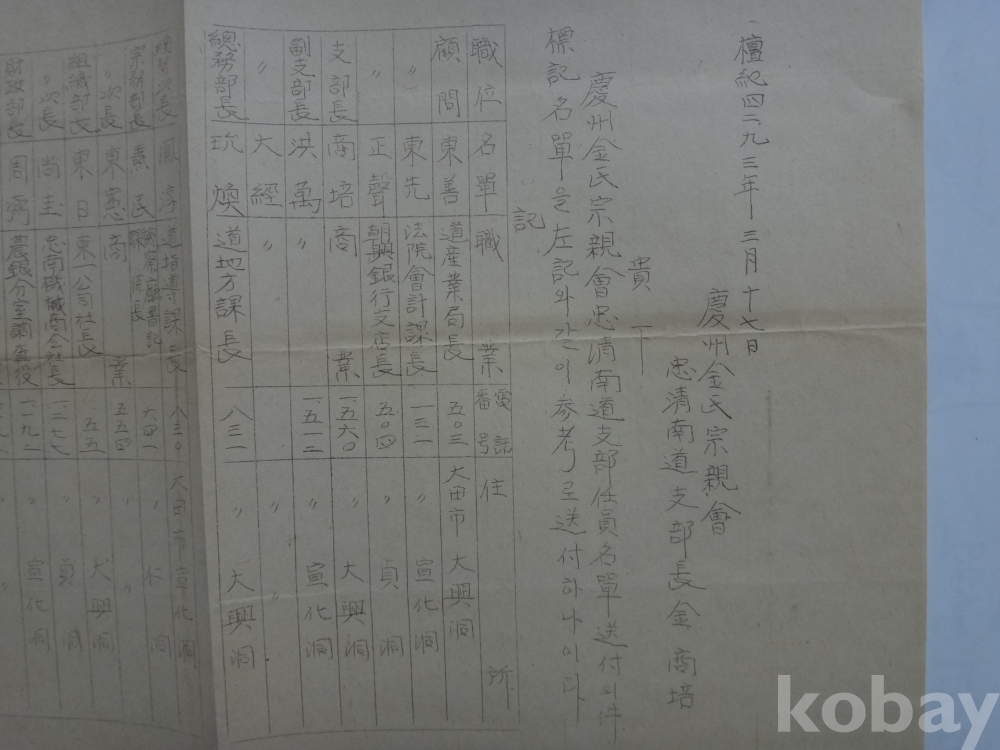 檀紀四二九三年 三月 十七日
慶州金氏宗親會
忠清南道支部長 金商培
貴下
慶州金氏宗親會忠清南道支部任員名單送付의件
標記名單을左記와같이參考로送付하나이다
記
職位 名單 職業 電話番號 住所
顧問 東善 道産業局長 五〇三 大田市 大興洞
〃 東先 法院會計課長 一三一 〃 宣化洞
〃 正聲 朝興銀行支店長 五〇四 〃 貞洞
支部長 商培 商業 一五六〇 〃 大興洞
副支部長 洪萬 〃 一五一三 〃 宣化洞
〃 大經 〃 〃 〃
總務部長 玧煥 道地方課長 八三一 〃 大興洞
次長 鳳序 道指導課長 八三〇 大田市 宣化洞
宗務部長 憲民 書記課長 六四一 〃 仁洞
〃次長 東憲 商業 五五四 〃 〃
組織部長 東日 東一公司社長 五五 〃 大興洞
〃次長 尚圭 忠南機械商会社長 一二七七 〃 貞洞
財政部長 周 農銀分室調査役 一一九二 〃 宣化洞
kobay